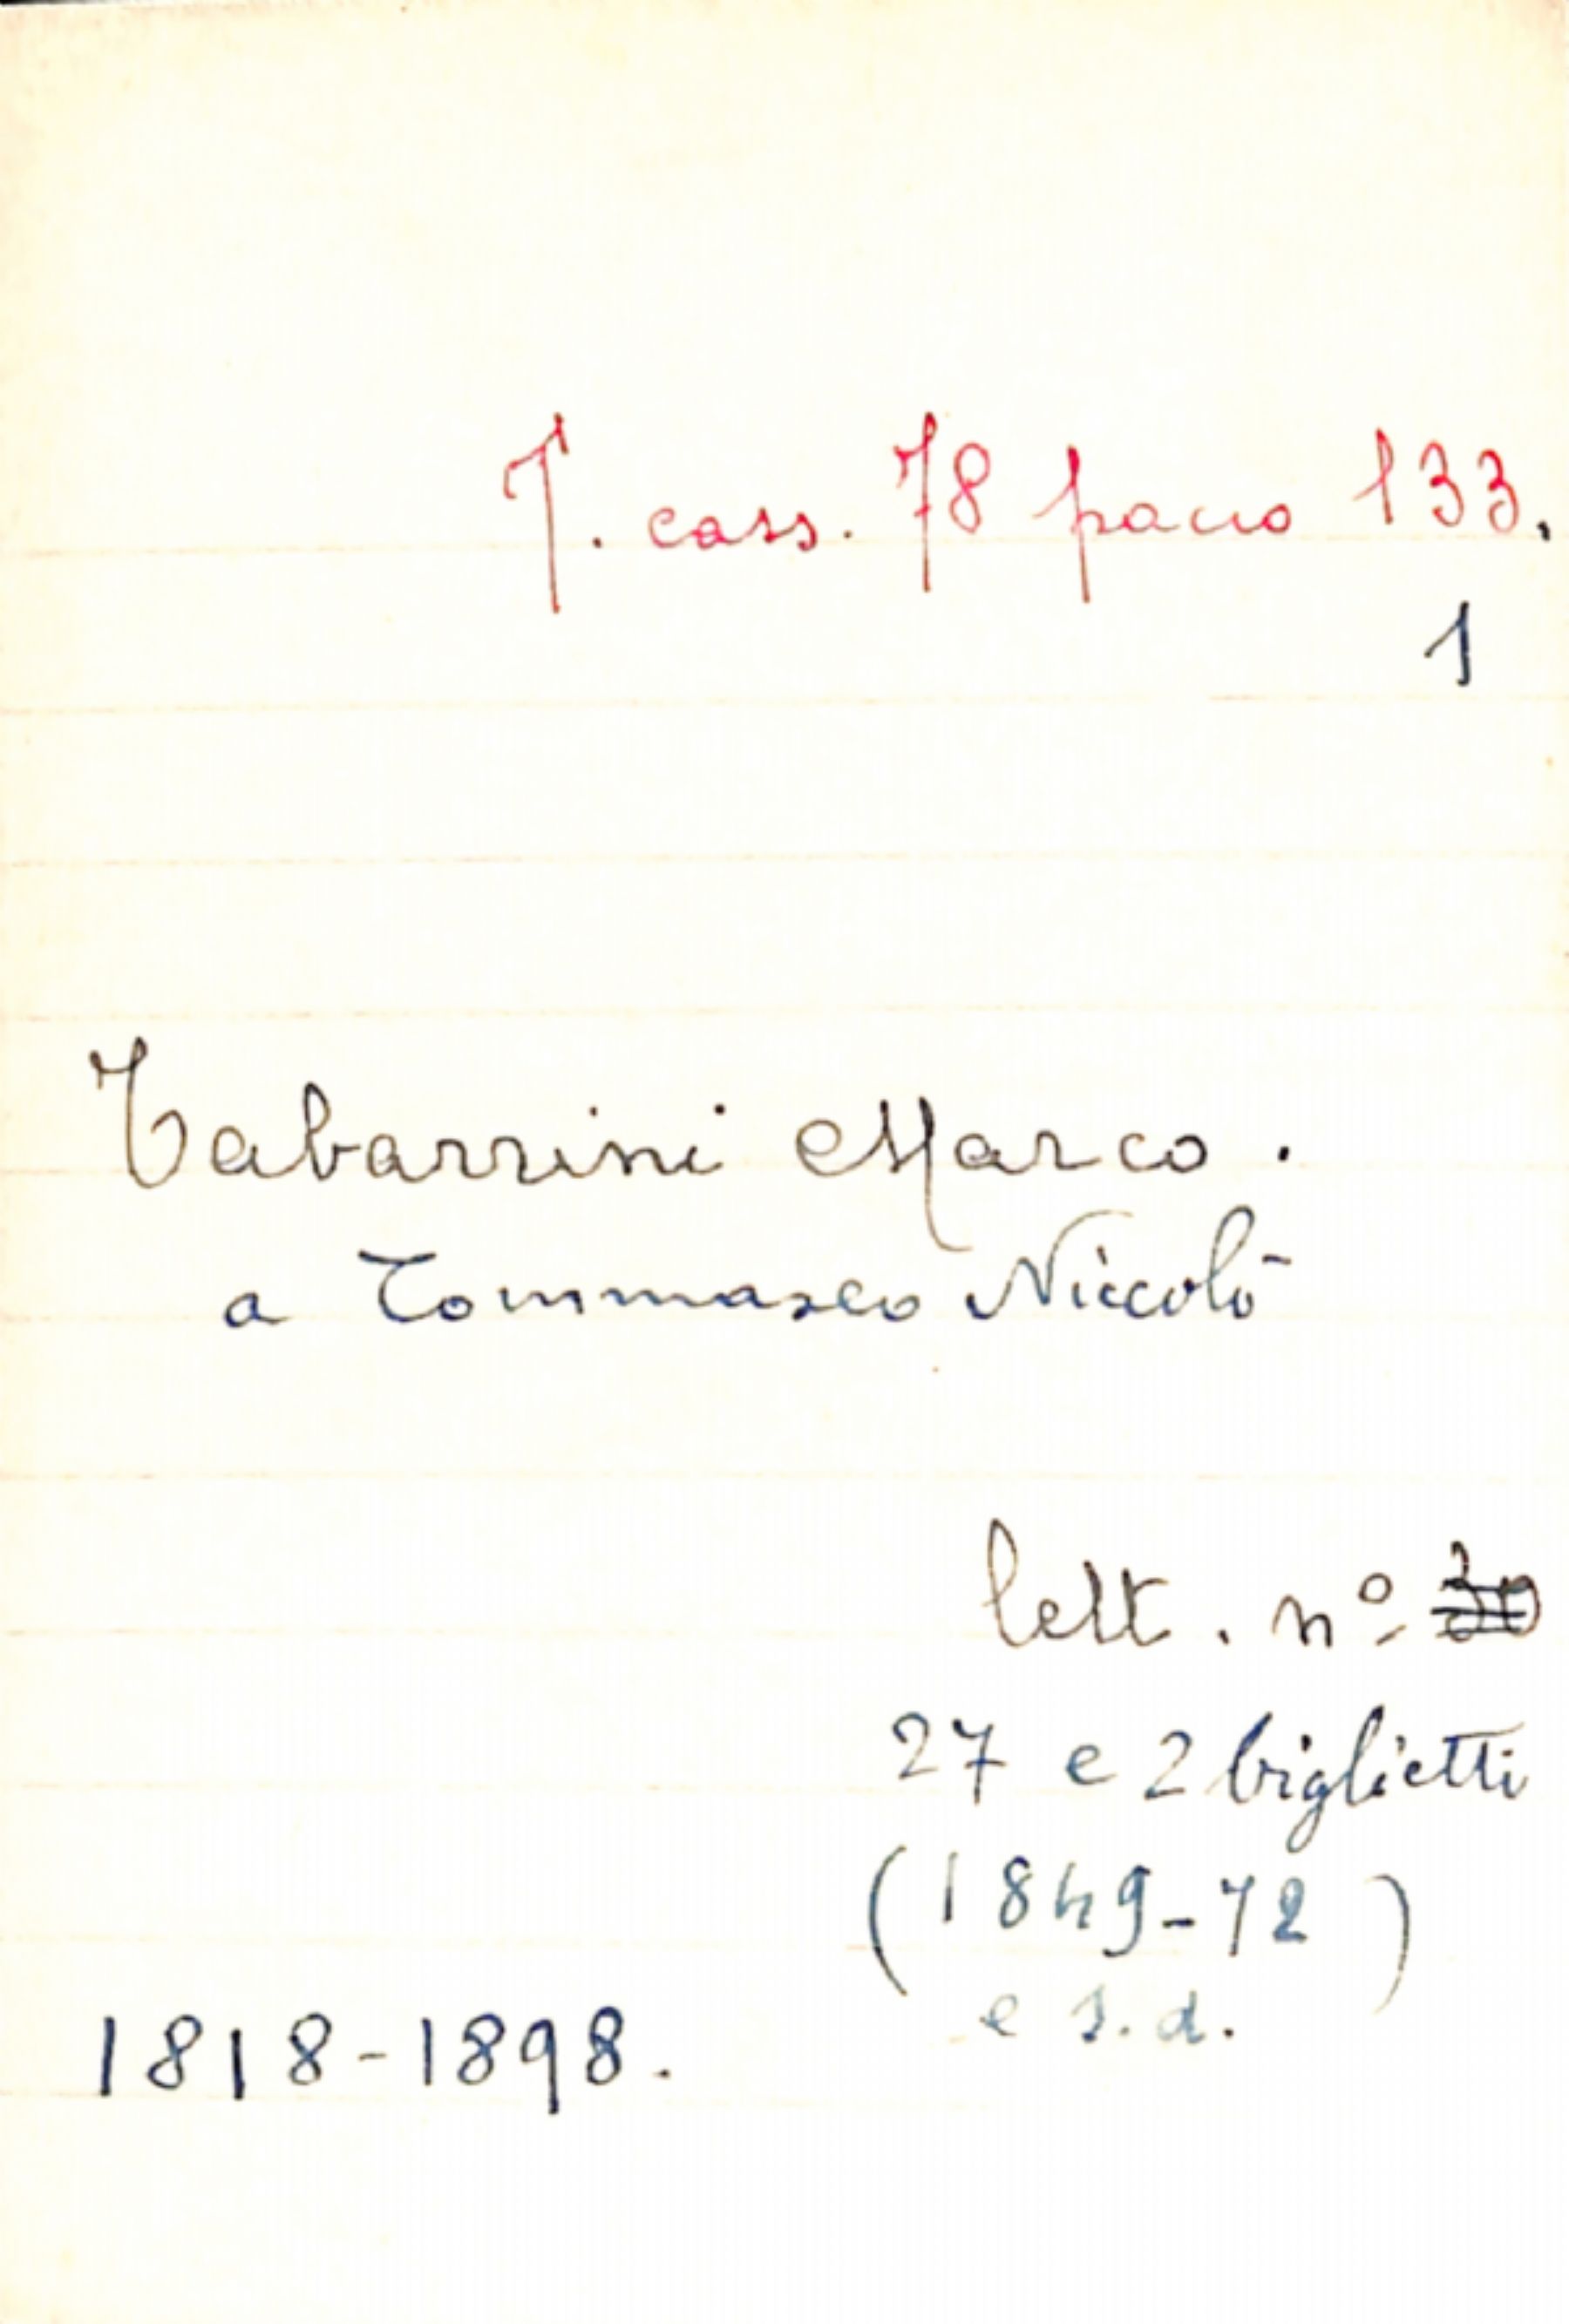 T. cass. 78 pacco 133.
1
Tabarrini Marco.
a Tommaseo Niccolò
lett. nº
27 e 2 biglietti
(1849-72)
e s.d.
1818-1898.